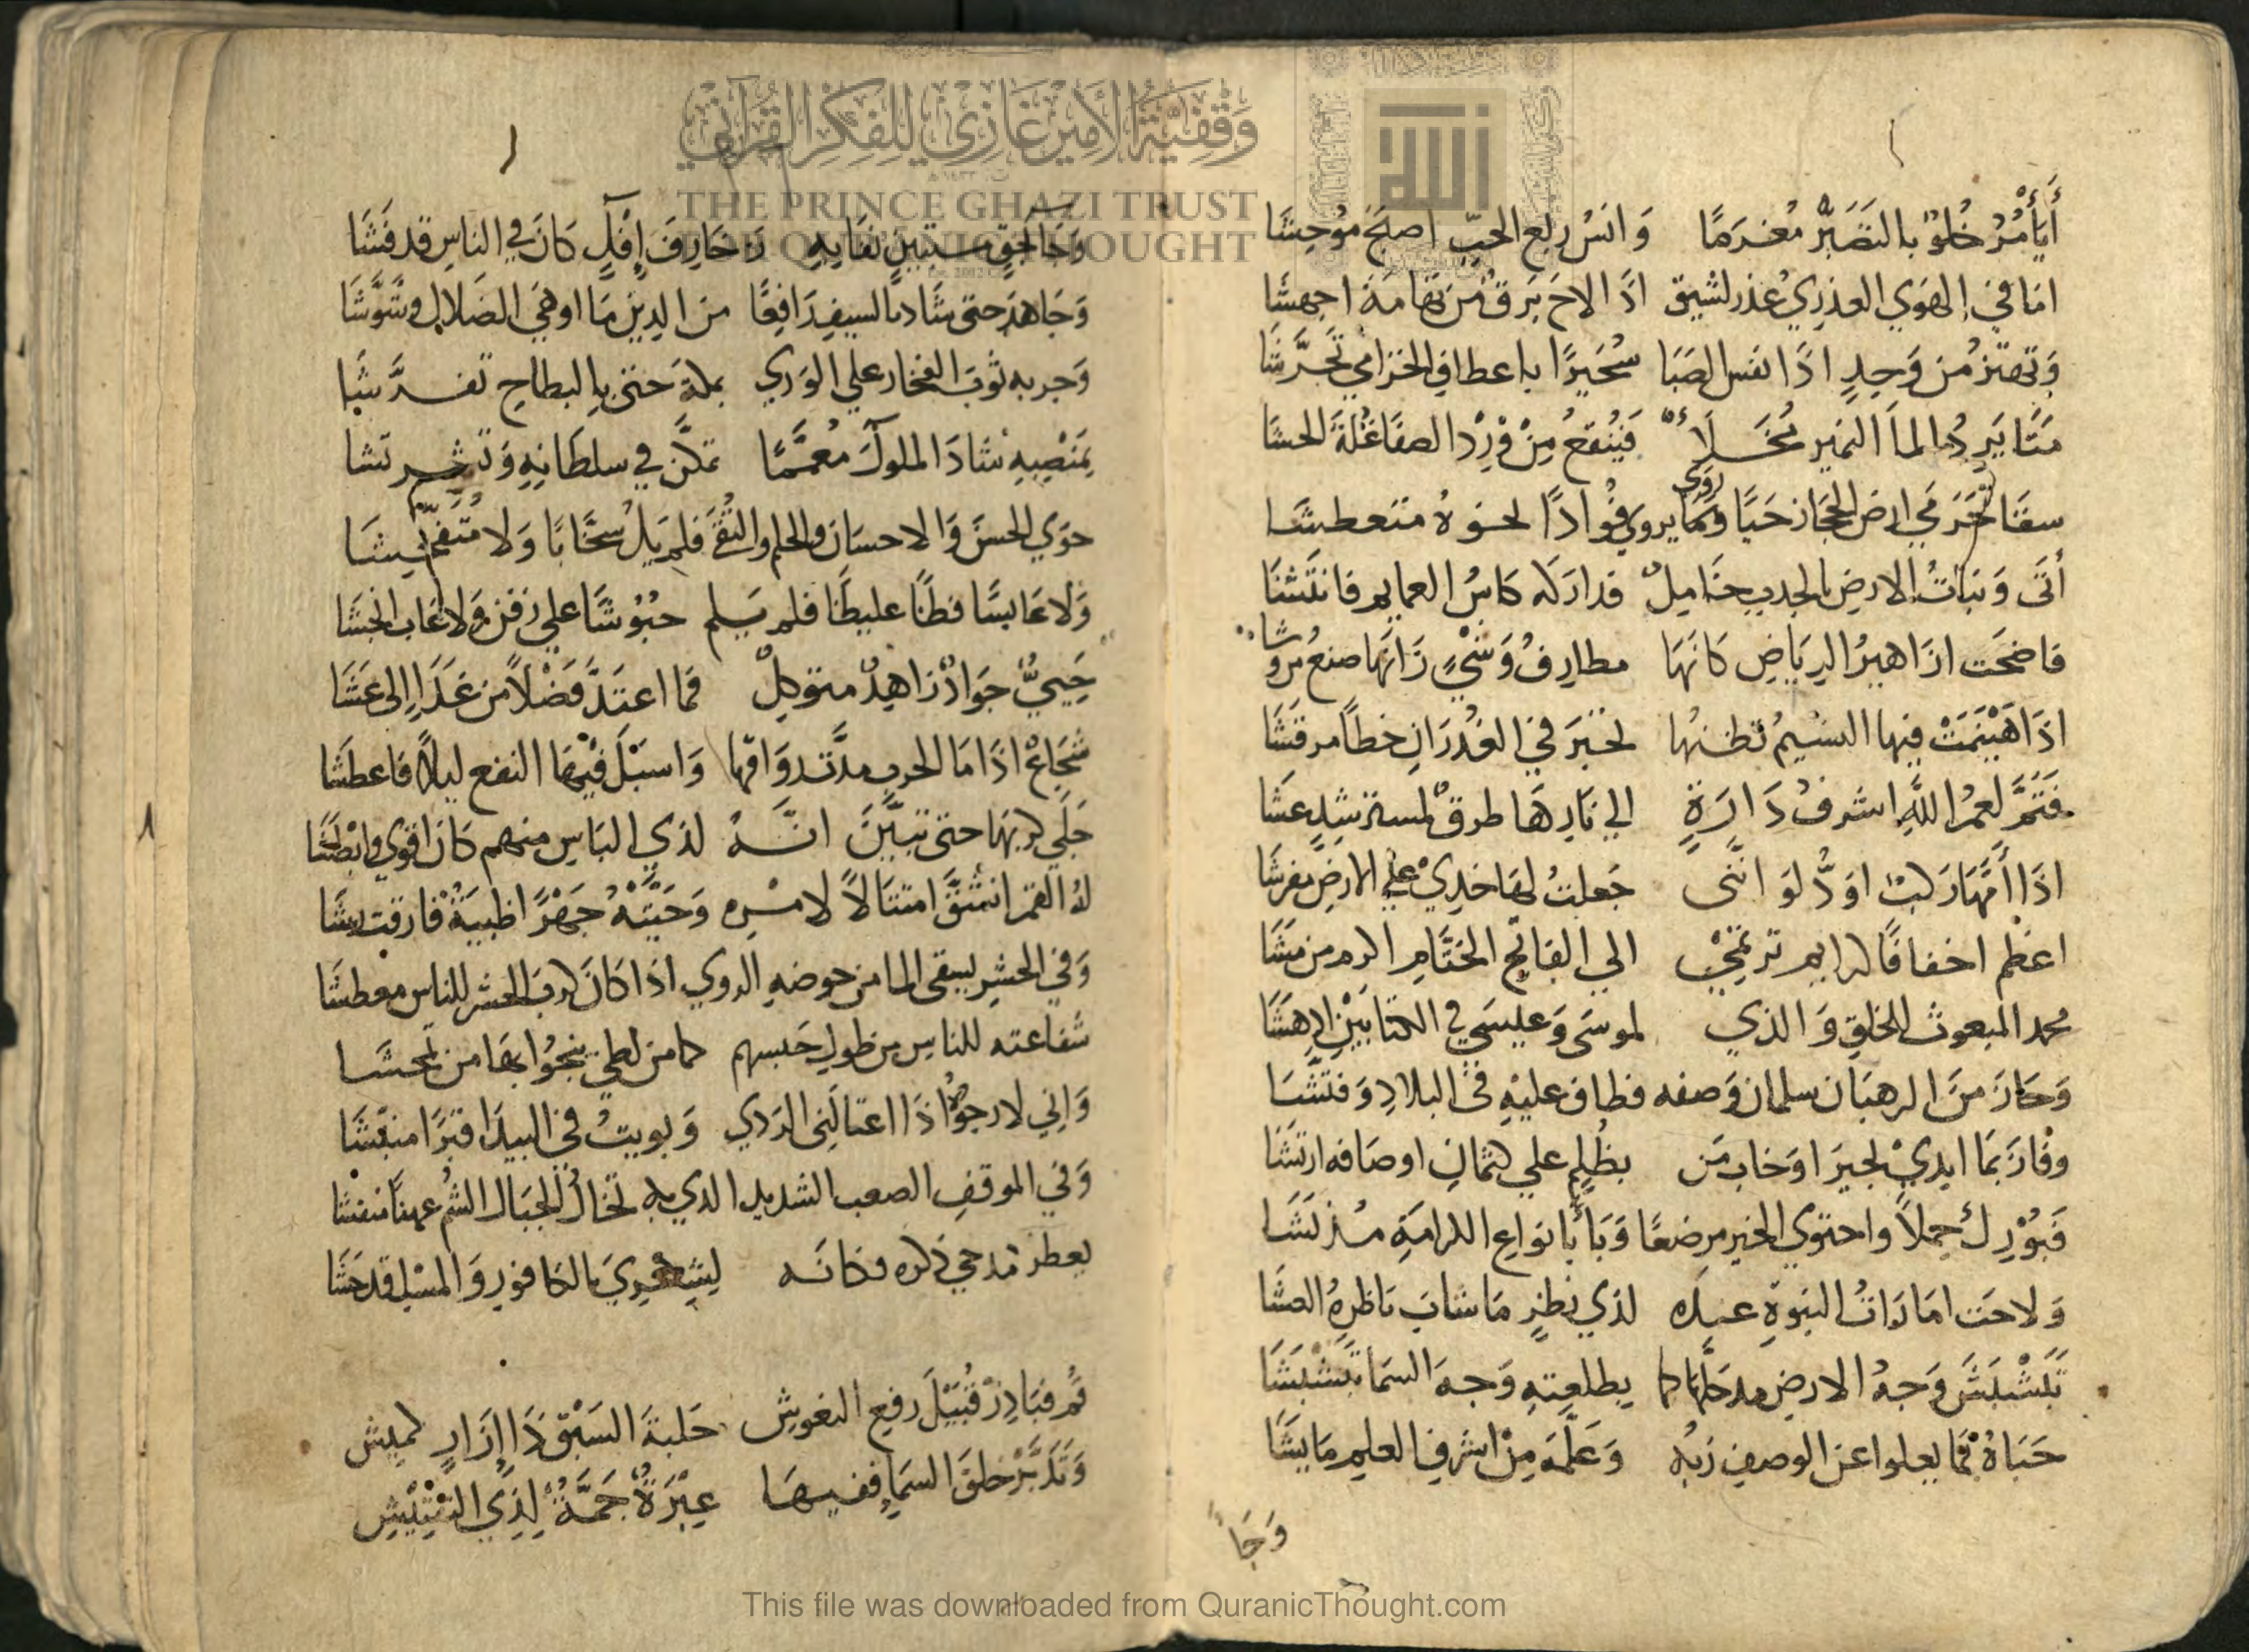 أيأمر خلو بالتصبر مغرما وانس ربع الحب اصبح موحشا
اما في الهوي العذري عذر لشيق اذا لاح برق من تهامة اجهشا
وتهتز من وجد اذا نفس الصبا سحيرا باعطاف الخزامي تحرشا
متا يرد الماء النمير فينقع من ورد الصفا غلة الحشا
سقا الحجاز حيا روى فوادا لحوه متعطشا
أتى ونبات الارض بالجدب خامل فدارت له كاس الغمايم فانتشا
فاضحت ازاهير الرياض كانها مطارف وشي زانها صنع مروشا
اذا هينمت فيها النسيم تظنها لحبر في الغدران خطا مرقشا
فتم لعمر الله اشرف دارة الي نارها طرق لمسترشد عشا
اذا امها ركب اود لو انني جعلت لها خدي علي الارض مفرشا
اعظم اخفافا ترتمي الي الفاتح الختام اكرم من مشا
محمد المبعوث للخلق والذي لموسى وعيسي في الكتابين ادهشا
وحاز من الرهبان سلمان وصفه فطاف عليه في البلاد وفتشا
وفاز بما ابدي بحيرا وخاب من بظلم علي كتمان اوصافه ارتشا
فبورك حملا واحتوي الخير مرضعا وبأ بانواع الكرامة منذ نشا
ولاحت امارات النبوة عنده لذي نظر ما شاب ناظره العشا
تبشبش وجه الارض مد حلها كما بطلعته وجه السما تبشبشا
حباه بما يعلوا عن الوصف ربه وعلمه من اشرف العلم ما يشا
وجا
وجا بحق مستبين نفا به زخارف إفك كان في الناس قد فشا
وجاهد حتى شاد بالسيف رافعا من الدين ما اوهي الضلال وشوشا
وجر به ثوب الفخار علي الوري بمكة حتى بالبطاح تفرشا
بمنصبه شاد الملوك معمما تمكن في سلطانه وتشربشا
حوي الحسن والاحسان والحلم والتقى فلم يك سخابا ولا متفحشا
ولا عابسا فظا غليظا فلم يلم حبوشا علي زفن ولا عاب الحبشا
حيي جواد زاهد متوكل فما اعتد فضلا من غداء إلى عشا
شجاع اذا ما الحرب مدت رواقها واسبل فيها النقع ليلا فاعطشا
جلي كربها حتى تبين انه لذي الباس منهم كان اقوى وابطشا
له القمر انشق امتثالا لامره وحيته جهرا ظبية فارقت رشا
وفي الحشر يسقى الما من حوضه الروي اذا كان كرب الحشر للناس معطشا
شفاعته للناس من طول حبسهم كما من لظي ينجوا بها من تمحشا
واني لارجوه اذا اغتالني الردي وبويت في البيدا قبرا منبشا
وفي الموقف الصعب الشديد الذي به تخال الجبال الشم عهنا منفشا
يعطر مدحي ذكره فكانه لشعري بالكافور والمسك قد حشا
قم فبادر قبيل رفع النعوش حلبة السبق ذا إزار كميش
وتدبر خلق السماء ففيها عبرة جمة لذي التفتيش
وقفية الأمير غازي للفكر القرآني
THE PRINCE GHAZI TRUST
FOR QUR'ANIC THOUGHT
الله
This file was downloaded from QuranicThought.com